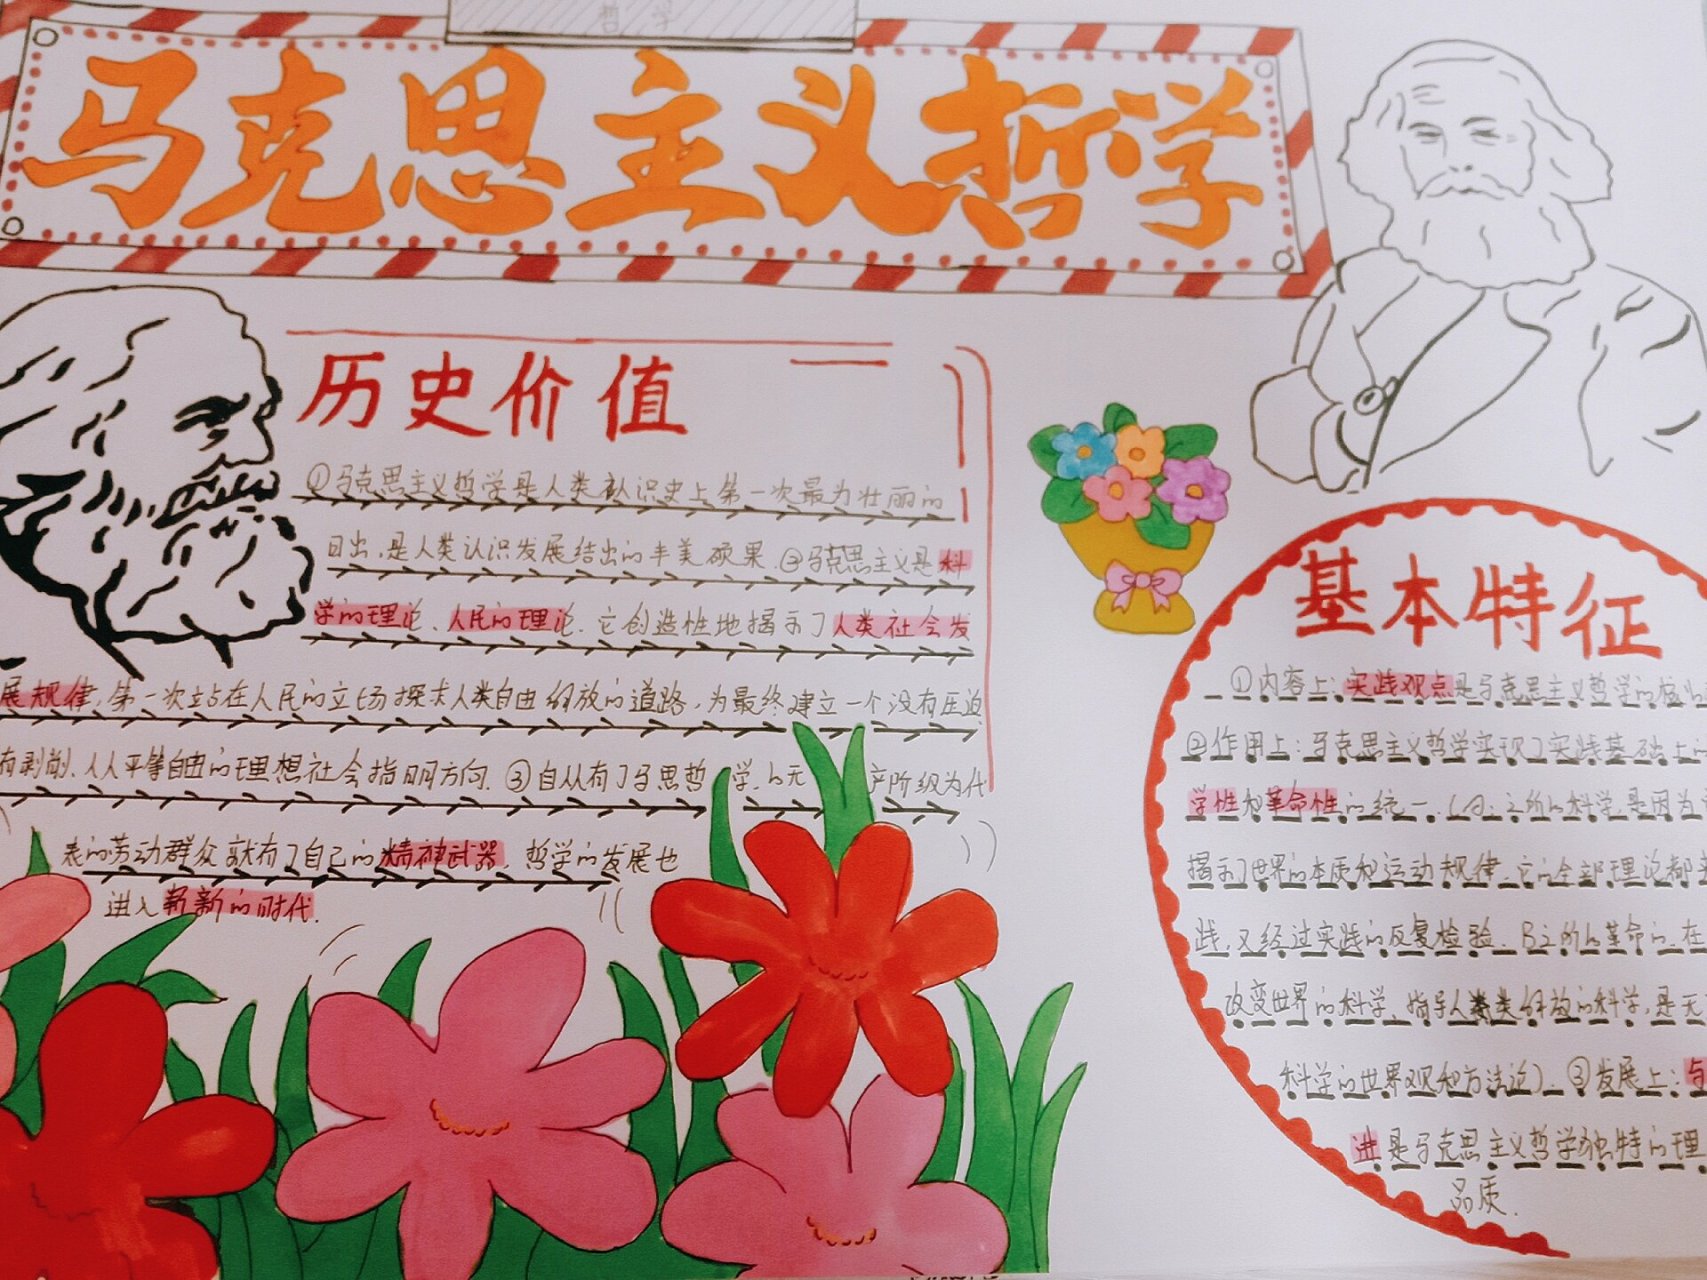 哲学
马克思主义哲学
历史价值
①马克思主义哲学是人类认识史上第一次最为壮丽的
日出,是人类认识发展结出的丰美硕果.②马克思主义是科
学的理论、人民的理论.它创造性地揭示了人类社会发
展规律,第一次站在人民的立场探求人类自由解放的道路,为最终建立一个没有压迫
有剥削、人人平等自由的理想社会指明方向.③自从有了马思哲学,以无产阶级为代
表的劳动群众就有了自己的精神武器,哲学的发展也
进入崭新的时代.
基本特征
①内容上:实践观点是马克思主义哲学的核心
②作用上:马克思主义哲学实现了实践基础上的
学性和革命性的统一.(A:之所以科学,是因为
揭示了世界的本质和运动规律.它的全部理论都
践,又经过实践的反复检验.B之所以革命的.在
改变世界的科学,指导人类类解放的科学,是无
科学的世界观和方法论).③发展上:与
进是马克思主义哲学独特的理
品质.